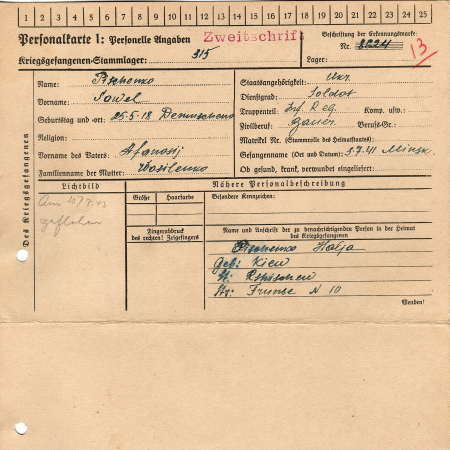 1 2 3 4 5 6 7 8 9 10 11 12 13 14 15 16 17 18 19 20 21 22 23 24 25
Personalkarte I: Personelle Angaben
Zweitschrift
Kriegsgefangenen-Stammlager: 315
Beschriftung der Erkennungsmarke:
Nr.
13
Lager:
Des Kriegsgefangenen
Name: Pschenko
Vorname: Sawel
Geburtstag und -ort: 25.5.18
Religion:
Vorname des Vaters: Afanosij
Familienname der Mutter: Wasilenko
Staatsangehörigkeit: Ukr.
Dienstgrad: Soldat
Truppenteil: Inf. Reg. Komp. usw.:
Zivilberuf: Bauer Berufs-Gr.:
Matrikel Nr. (Stammrolle des Heimatstaates):
Gefangennahme (Ort und Datum): 3.7.41 Minsk
Ob gesund, krank, verwundet eingeliefert:
Lichtbild
Am
geflohen
Nähere Personalbeschreibung
Größe
Haarfarbe
Besondere Kennzeichen:
Fingerabdruck
des rechten! Zeigefingers
Name und Anschrift der zu benachrichtigenden Person in der Heimat
des Kriegsgefangenen
Pschenko Halja
Geb: Kiew
Frunse N 10
Wenden!